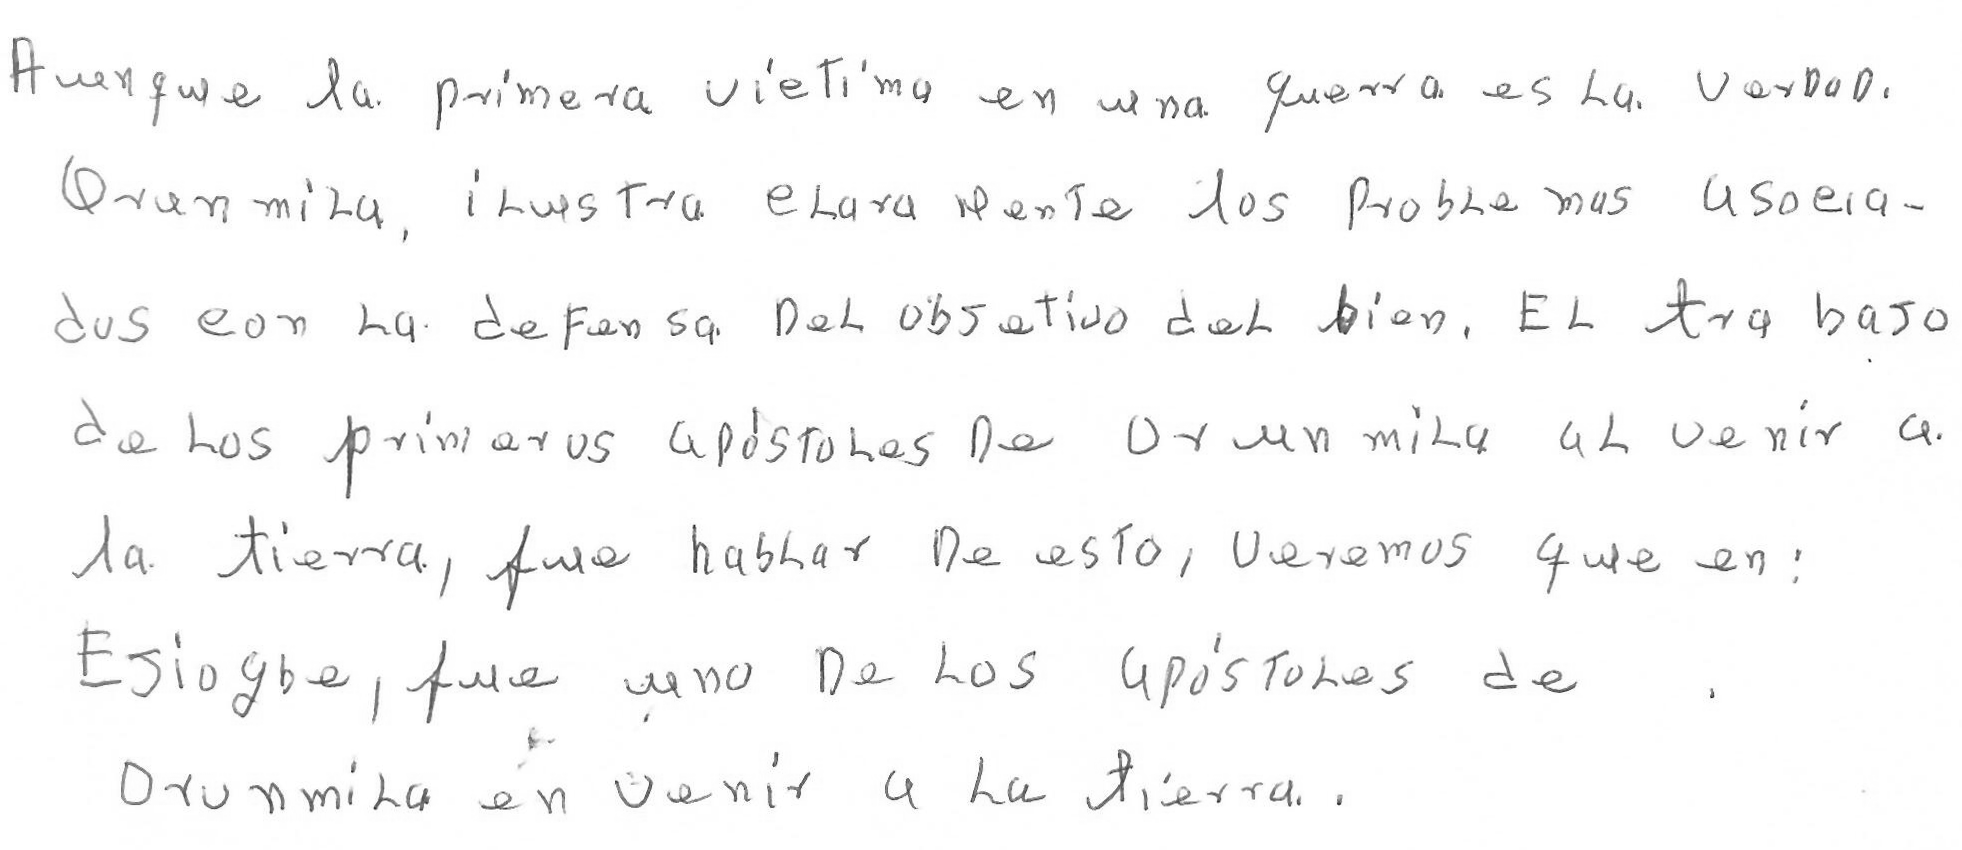 Aunque la primera victima en una guerra es La verDaD.
Orunmila, iLustra cLaramente los probLemas asocia-
dos con La defensa DeL objetivo deL bien. EL trabajo
de Los primeros apóstoLes De OrunmiLa aL venir a
la tierra, fue habLar De esto, veremos que en:
Ejiogbe, fue uno De Los apóstoLes de
OrunmiLa en venir a La tierra.